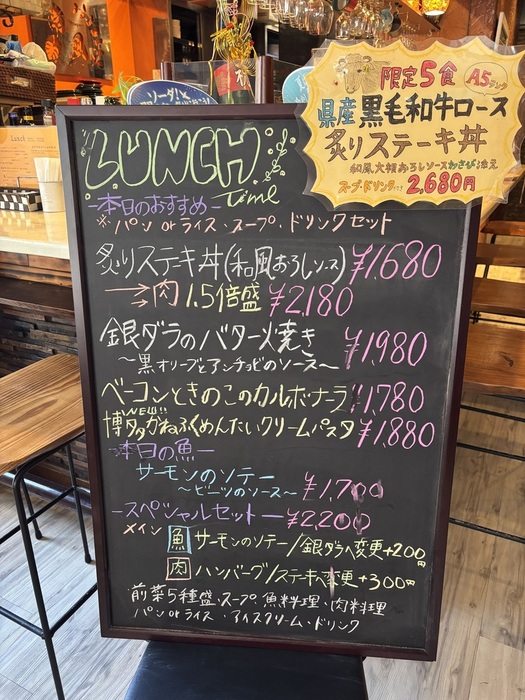 限定5食 A5ランク
県産黒毛和牛ロース
炙りステーキ丼
和風大根おろしソースわさび添え
スープ・ドリンク付 2,680円
LUNCH
Time
-本日のおすすめ-
※パン or ライス、スープ、ドリンクセット
炙りステーキ丼(和風おろしソース) ¥1,680
→肉1.5倍盛 ¥2,180
銀ダラのバター焼き ¥1,980
〜黒オリーブとアンチョビのソース〜
ベーコンときのこのカルボナーラ ¥1,780
NEW!!
博多がねふくめんたいクリームパスタ ¥1,880
-本日の魚-
サーモンのソテー
〜ビーツのソース〜 ¥1,700
-スペシャルセット- ¥2,200
メイン 魚 サーモンのソテー/銀ダラへ変更+200円
肉 ハンバーグ/ステーキへ変更+300円
前菜5種盛、スープ、魚料理・肉料理
パン or ライス、アイスクリーム・ドリンク